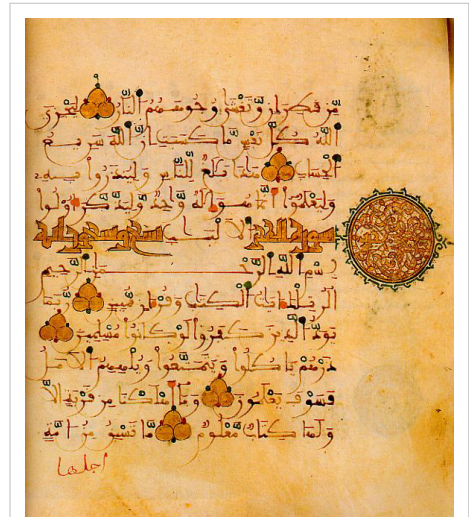 من قطران وتغشى وجوههم النار ليجزي
الله كل نفس ما كسبت ان الله سريع
الحساب هذا بلغ للناس ولينذروا به
وليعلموا انما هو اله وحد وليذكر اولوا
سورة الحجر الالبب تسع وتسعون اية
بسم الله الرحمن الرحيم
الر تلك ايت الكتب وقرءان مبين ربما
يود الذين كفروا لو كانوا مسلمين
ذرهم ياكلوا ويتمتعوا ويلههم الامل
فسوف يعلمون وما اهلكنا من قرية الا
ولها كتاب معلوم ما تسبق من امة
اجلها